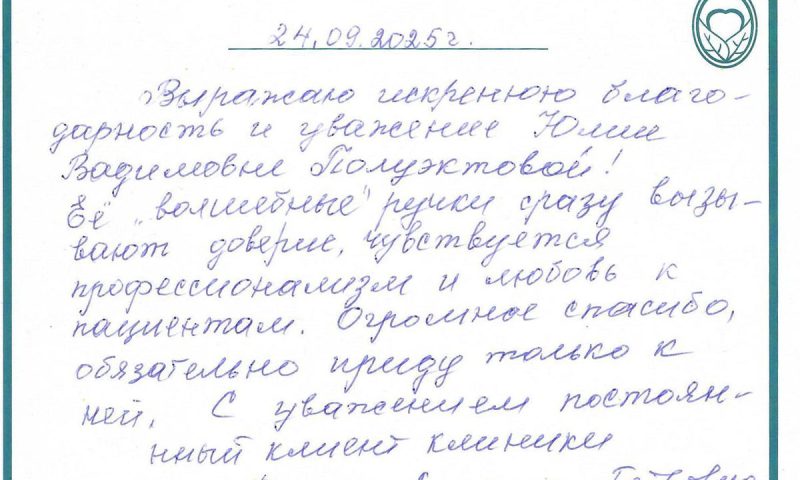 24.09.2025г.
Выражаю искреннюю благо-
дарность и уважение Юлии
Вадимовне Полуэктовой!
Её „волшебные" ручки сразу вызы-
вают доверие, чувствуется
профессионализм и любовь к
пациентам. Огромное спасибо,
обязательно приду только к
ней. С уважением постоян-
нный клиент клиники